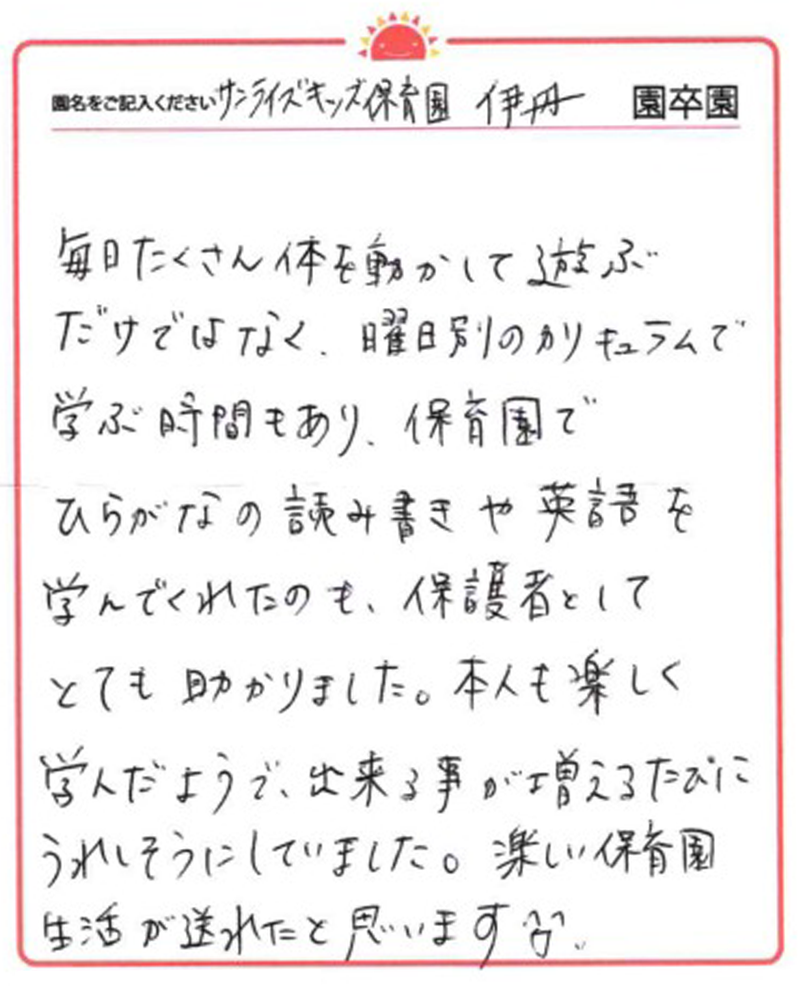 園名をご記入ください サンライズキッズ保育園 伊丹 園卒園
毎日たくさん体を動かして遊ぶ
だけではなく、曜日別のカリキュラムで
学ぶ時間もあり、保育園で
ひらがなの読み書きや英語を
学んでくれたのも、保護者として
とても助かりました。本人も楽しく
学んだようで、出来る事が増えるたびに
うれしそうにしていました。楽しい保育園
生活が送れたと思います